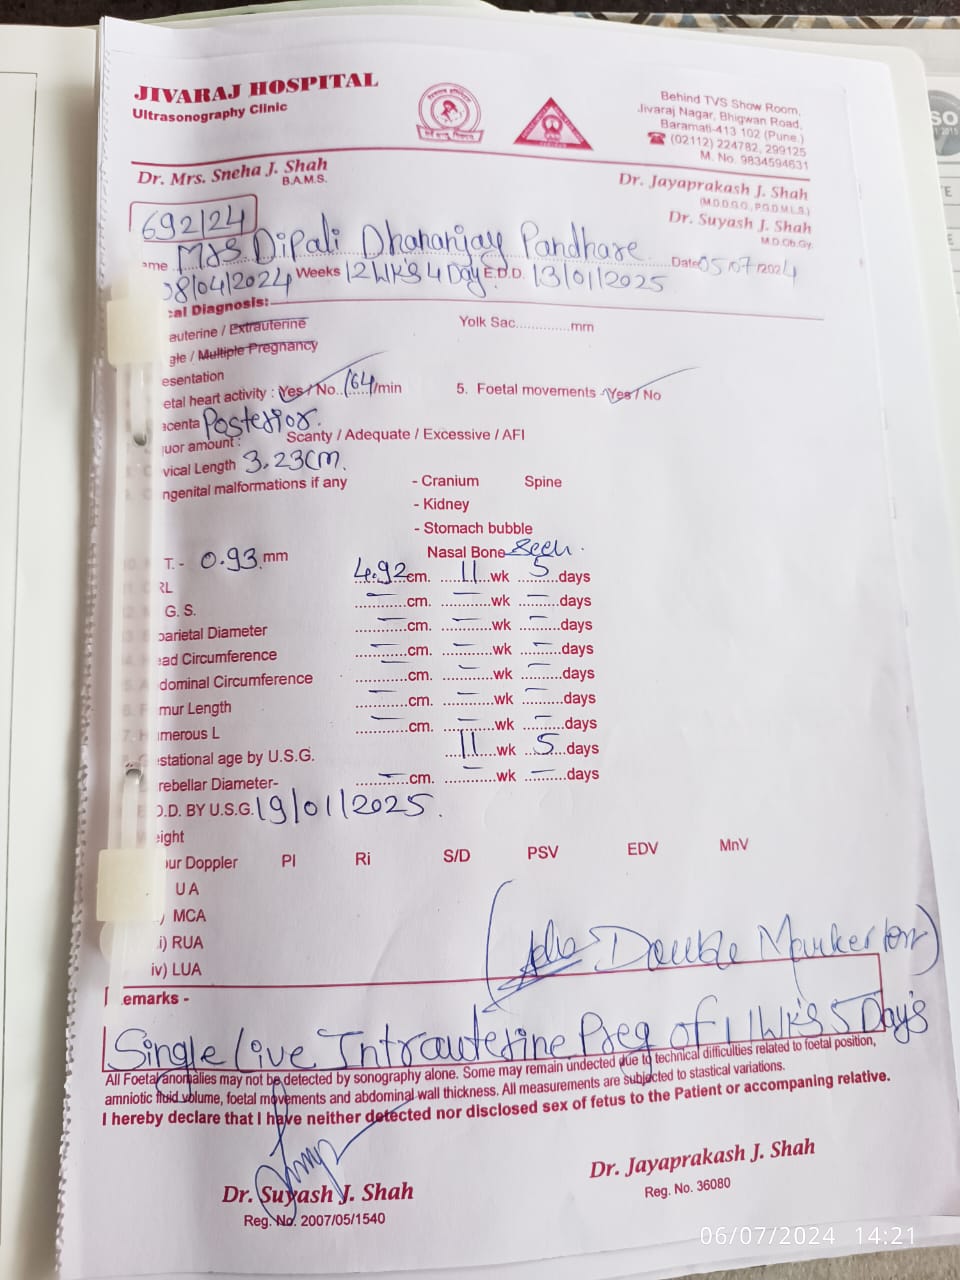 JIVARAJ HOSPITAL
Ultrasonography Clinic
Behind TVS Show Room,
Jivaraj Nagar, Bhigwan Road,
Baramati-413 102 (Pune.)
☎ (02112) 224782, 299125
M. No. 9834594631
Dr. Mrs. Sneha J. Shah
B.A.M.S.
Dr. Jayaprakash J. Shah
(M.D.D.G.O., P.G.D.M.L.S.)
Dr. Suyash J. Shah
M.D.Ob.Gy.
692/24
ame Mrs Dipali Dhananjay Pandhare Date 05/07/2024
08/04/2024 Weeks 12WK's 4 Day E.D.D. 13/01/2025
cal Diagnosis:
auterine / Extrauterine Yolk Sac..............mm
gle / Multiple Pregnancy
esentation
etal heart activity : Yes / No..164./min 5. Foetal movements - Yes / No
acenta Posterior.
uor amount : Scanty / Adequate / Excessive / AFI
vical Length 3.23cm.
ngenital malformations if any - Cranium Spine
- Kidney
- Stomach bubble
Nasal Bone Seen.
T. - 0.93 mm
RL 4.92 cm. 11 wk 5 days
G. S. – cm. – wk – days
parietal Diameter – cm. – wk – days
ead Circumference – cm. – wk – days
dominal Circumference – cm. – wk – days
mur Length – cm. – wk – days
merous L – cm. – wk – days
estational age by U.S.G. 11 wk 5 days
rebellar Diameter- – cm. – wk – days
.D. BY U.S.G. 19/01/2025.
eight
ur Doppler PI Ri S/D PSV EDV MnV
UA
) MCA
i) RUA
iv) LUA
(Adv Double Marker
emarks -
Single Live Intrauterine Preg of 11WK's 5 Day's
All Foetal anomalies may not be detected by sonography alone. Some may remain undected due to technical difficulties related to foetal position,
amniotic fluid volume, foetal movements and abdominal wall thickness. All measurements are subjected to stastical variations.
I hereby declare that I have neither detected nor disclosed sex of fetus to the Patient or accompaning relative.
Dr. Suyash J. Shah
Reg. No. 2007/05/1540
Dr. Jayaprakash J. Shah
Reg. No. 36080
06/07/2024 14:21